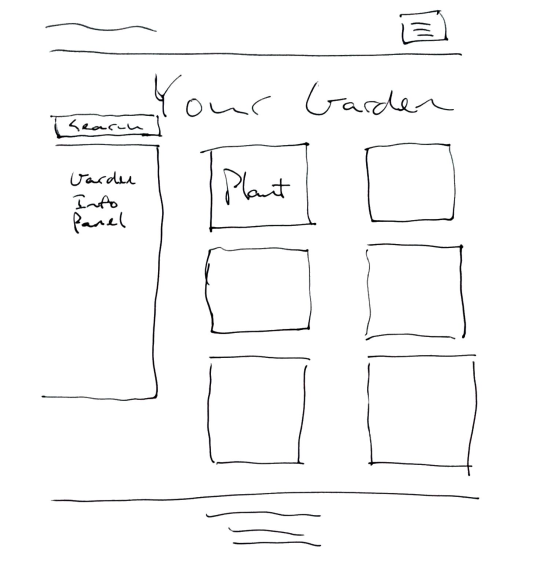 Your Garden
Search
Garden
Info
Panel
Plant